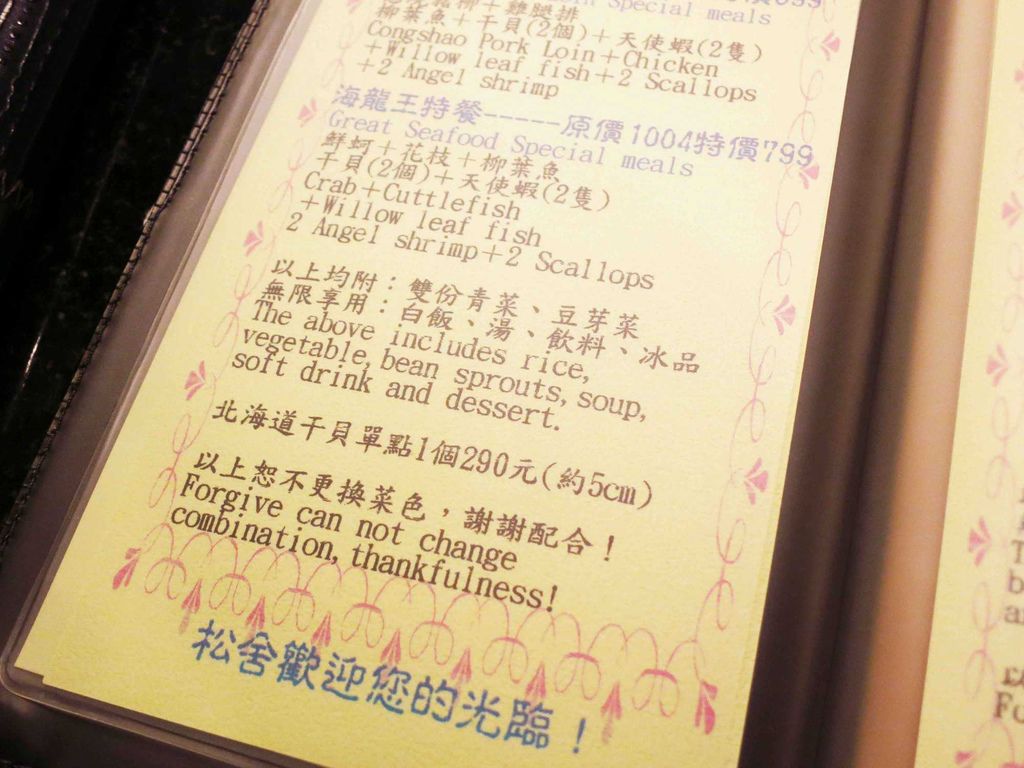 雞腿排
Special meals
柳葉魚+干貝(2個)+天使蝦(2隻)
Congshao Pork Loin+Chicken
+Willow leaf fish+2 Scallops
+2 Angel shrimp
海龍王特餐-----原價1004特價799
Great Seafood Special meals
鮮蚵+花枝+柳葉魚
干貝(2個)+天使蝦(2隻)
Crab+Cuttlefish
+Willow leaf fish
2 Angel shrimp+2 Scallops
以上均附:雙份青菜、豆芽菜
無限享用:白飯、湯、飲料、冰品
The above includes rice,
vegetable, bean sprouts, soup,
soft drink and dessert.
北海道干貝單點1個290元(約5cm)
以上恕不更換菜色,謝謝配合!
Forgive can not change
combination, thankfulness!
松舍歡迎您的光臨!